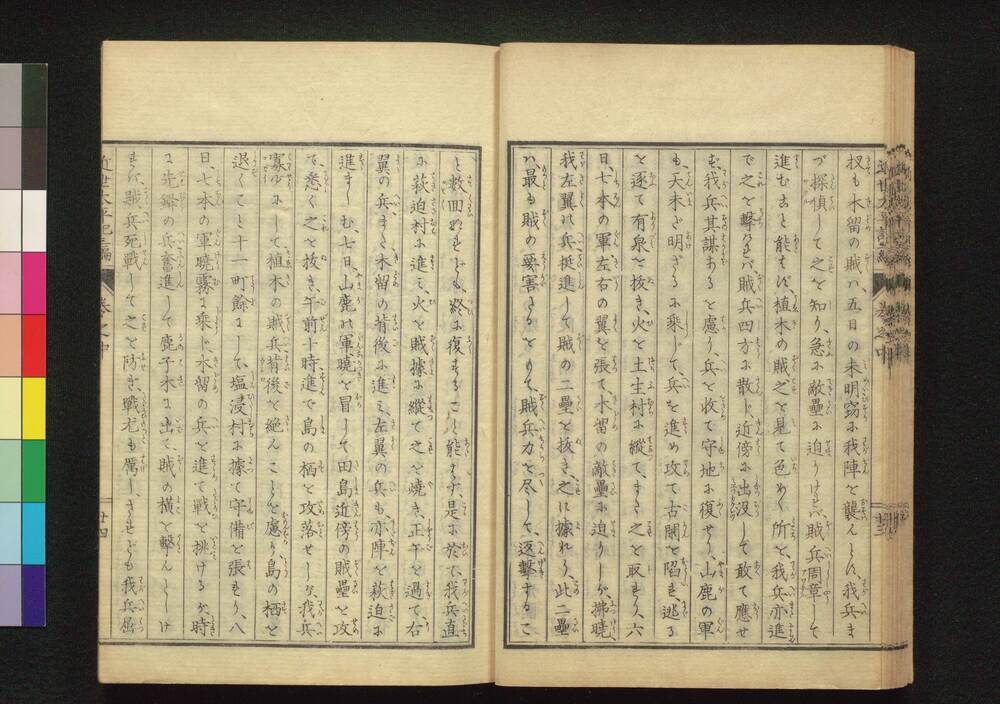 扨も木留の賊ハ、五日の未明窃に我陣を襲んとし、我兵ま
づ探偵して之を知り、急に敵壘に迫りけれバ賊兵周章して
進むこと能はず、植木の賊之を見て色めく所を、我兵亦進
で之を撃けれバ賊兵四方に散じ、近傍に出没して敢て應せ
ず、我兵其謀あるを慮り、兵を收て守地に復せり、山鹿の軍
も、天未だ明ざるに乘じて、兵を進め攻て古閑を陷れ、逃る
を逐て有泉を抜き、火を土生村に縱て、また之を取れり、六
日、七本の軍左右の翼を張て、木留の敵壘に迫りしが、拂曉
我左翼の兵挺進して賊の二壘を抜き、之に據れり、此二壘
ハ、最も賊の要害たるをもて、賊兵力を尽して、返撃するこ
と数回なれども、終に復すること能はず、是に於て、我兵直
に荻迫村に進ミ、火を賊據に縱て之を燒き、正午を過て、右
翼の兵、また木留の背後に進ミ、左翼の兵も、亦陣を荻迫に
進ましむ、七日、山鹿の軍曉を冒して田島近傍の賊壘を攻
て、悉く之を抜き、午前十時進で島の栖を攻落せしが、我兵
寡少にして、植木の賊兵背後を絶んことを慮り、島の栖を
退くこと十一町餘にして、塩浸村に據て守備を張れり、八
日、七本の軍曉霧に乘じ、木留の兵を進て戦を挑けるが、時
に先鋒の兵奮進して鹿子木に出て、賊の横を撃んとしけ
れバ、賊兵死戦して之を防ぎ、戦尤も厲し、されども我兵屈
近世太平記三編
卷之中
廿四